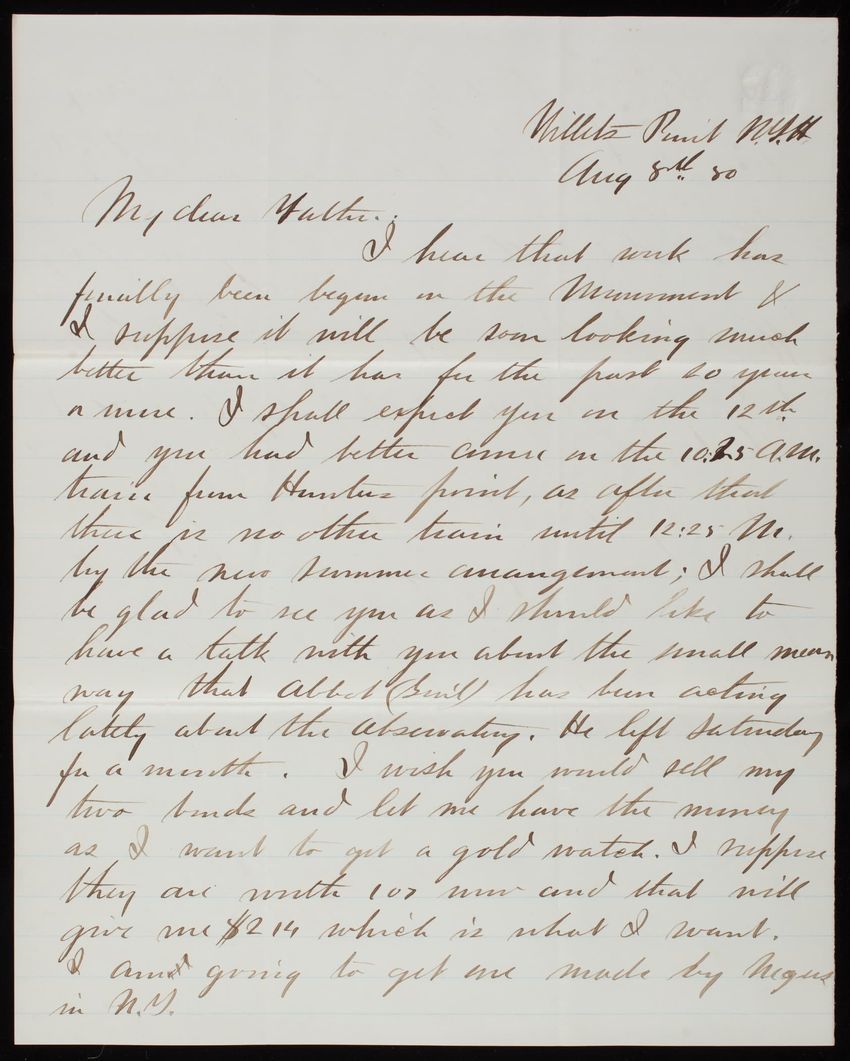 Willets Point N.Y.H
Aug 8th. 80
My dear Father:
I hear that work has
finally been begun on the Monument &
I suppose it will be soon looking much
better than it has for the past 20 years
or more. I shall expect you on the 12th
and you had better come on the 10:25 A.M.
train from Hunters point, as after that
there is no other train until 12:25 M.
by the new summer arrangement; I shall
be glad to see you as I should like to
have a talk with you about the small mean
way that Abbot (Genl) has been acting
lately about the observatory. He left Saturday
for a month. I wish you would sell my
two bonds and let me have the money
as I want to get a gold watch. I suppose
they are worth 107 now and that will
give me $214 which is what I want.
I am going to get one made by Negus
in N.Y.